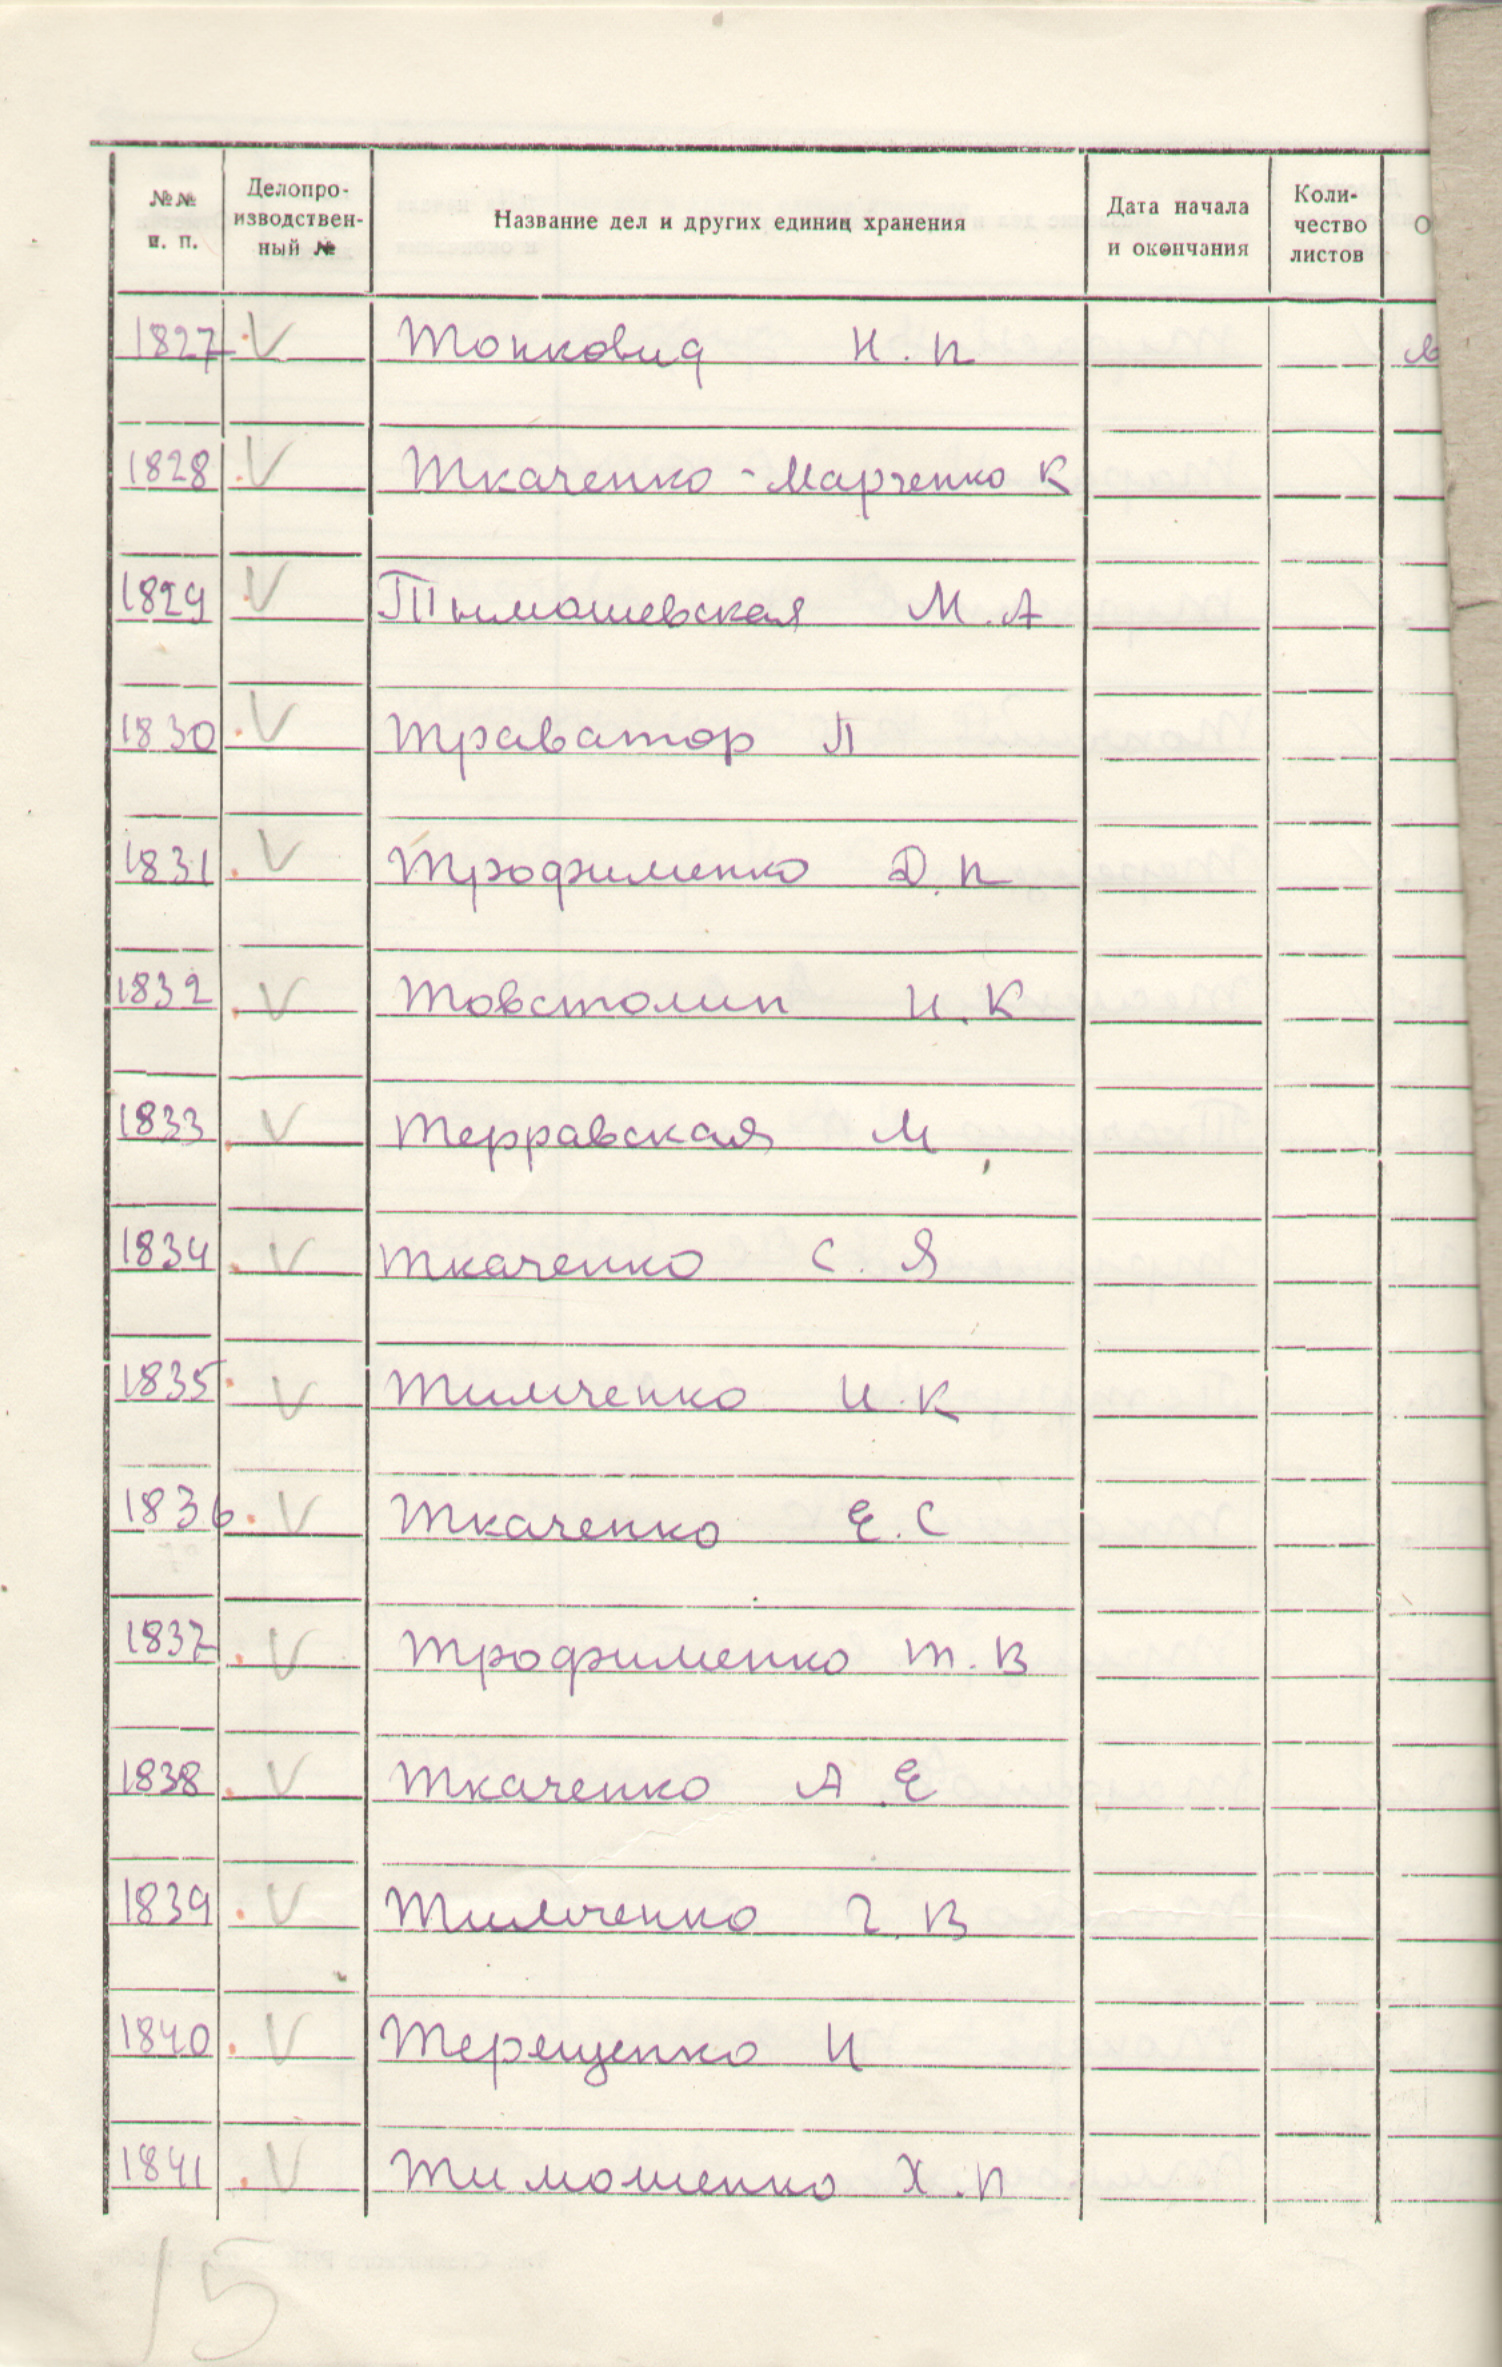 №№ п. п. Делопро-изводствен-ный № Название дел и других единиц хранения Дата начала и окончания Коли-чество листов О
1827 V Топковид Н. П
1828 V Ткаченко - Марченко К
1829 V Тымошевская М. А
1830 V Траватор П
1831 V Трофименко Д. П
1832 V Товстолип И. К
1833 V Терравская М
1834 V Ткаченко С. Я
1835 V Тимченко И. К
1836 V Ткаченко Е. С
1837 V Трофименко Т. В
1838 V Ткаченко А. Е
1839 V Тимченко Г. В
1840 V Терещенко И
1841 V Тимошенко Х. П
15